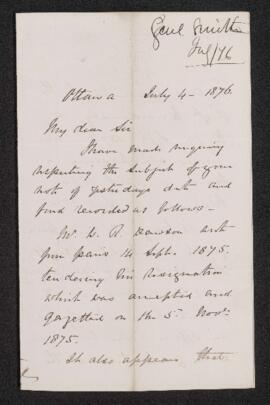 Genl Smith
July/76
Ottawa July 4 - 1876.
My dear Sir
I have made inquiry
respecting the subject of your
note of yesterdays date and
find recorded as follows -
Mr. S. A. Dawson
from Paris 14 Sept. 1875.
tendering his resignation
which was accepted and
gazetted on the 5. Novr.
1875.
It also appears that